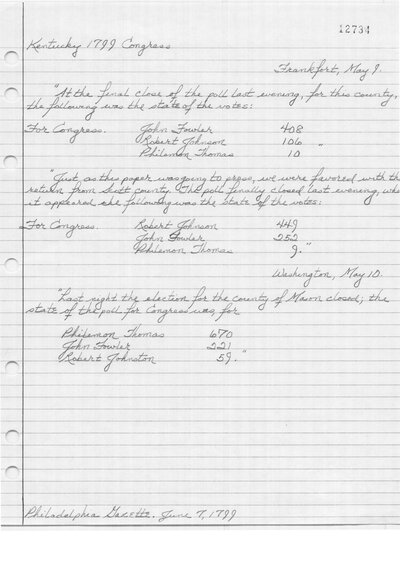 12734
Kentucky 1799 Congress
Frankfort, May 9.
"At the final close of the poll last evening, for this county,
the following was the state of the votes:
For Congress. John Fowler 408
Robert Johnson 106 "
Philemon Thomas 10
"Just, as this paper was going to press, we were favored with the
return from Scott county. The poll finally closed last evening, whe
it appeared the following was the state of the votes:
For Congress. Robert Johnson 449
John Fowler 252
Philemon Thomas 9."
Washington, May 10.
"Last night the election for the county of Mason closed; the
state of the poll for Congress was for
Philemon Thomas 670
John Fowler 221
Robert Johnston 59."
Philadelphia Gazette. June 7, 1799